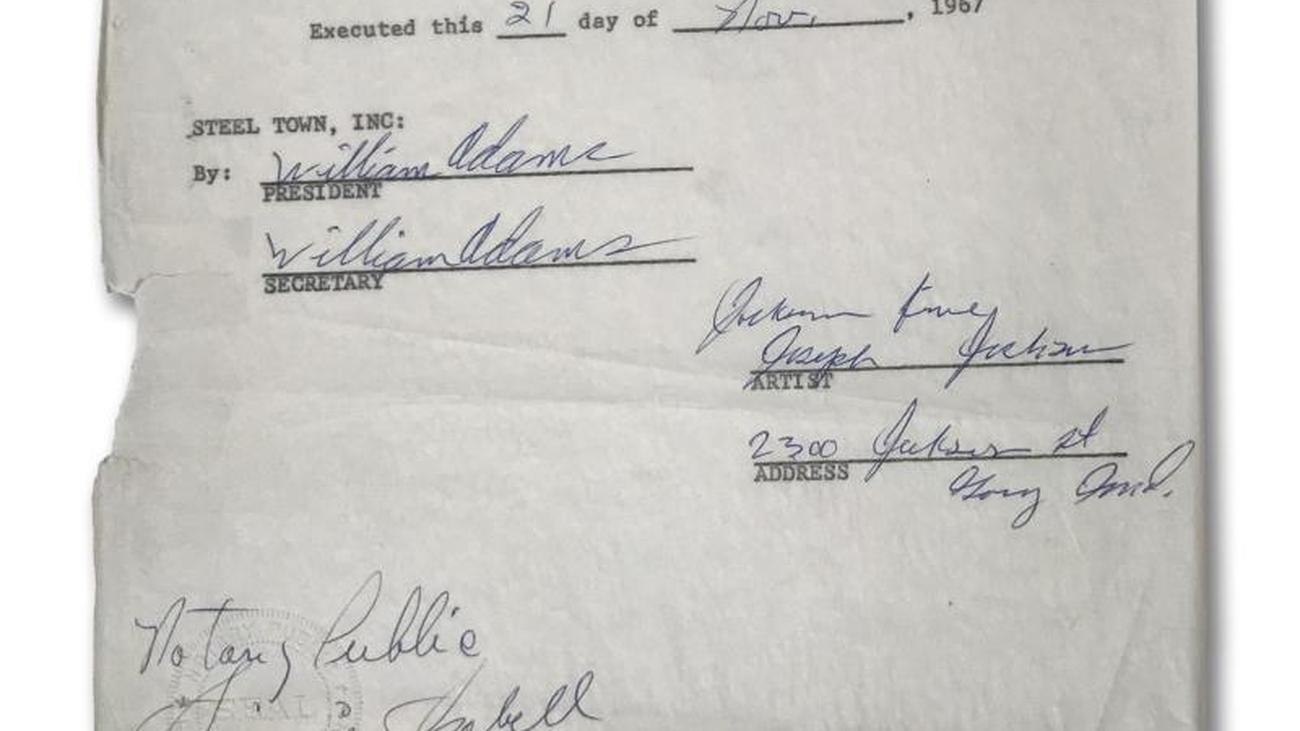 Executed this 21 day of Nov. , 1967
STEEL TOWN, INC:
By: William Adams
PRESIDENT
William Adams
SECRETARY
Jackson five
Joseph Jackson
ARTIST
2300 Jackson st
ADDRESS
Gary Ind.
Notary Public
SEAL